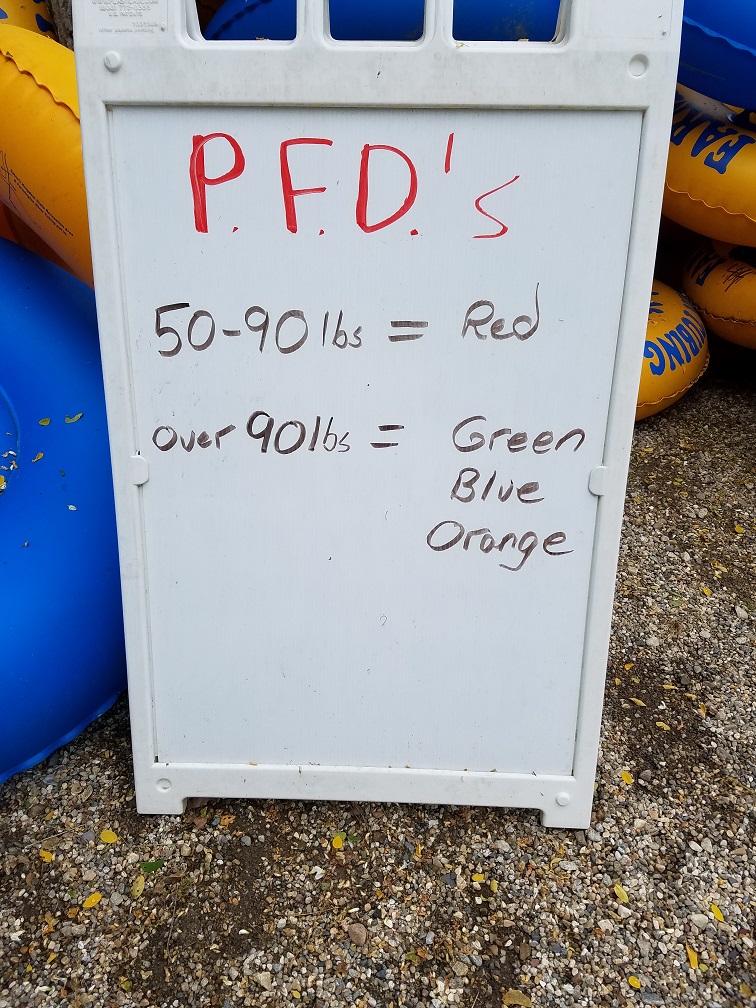 P.F.D.'s
50-90 lbs = Red
over 90 lbs = Green
Blue
Orange
TUBING